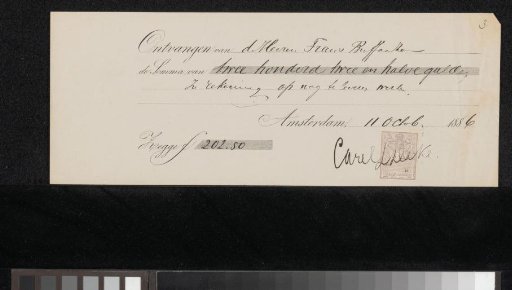 3
Ontvangen van d. Heeren Frans Buffa &
de Somma van twee honderd twee en halve gulden
in rekening op nog te leveren werk.
Amsterdam, 11 Octob. 1886
Zegge f 202.50
Carel